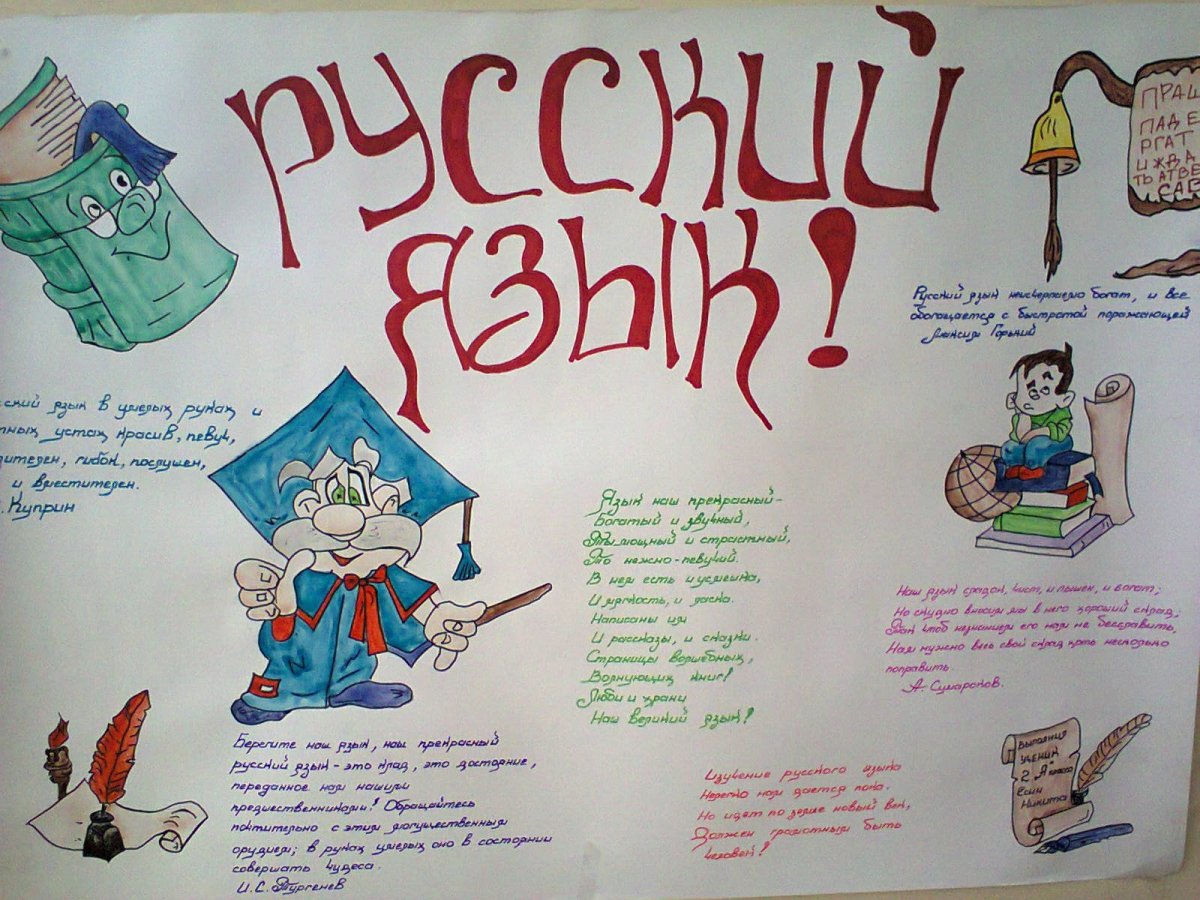 РУССКИЙ
ЯЗЫК!
ПРАШ
ПАДЕ
РГАТ
И ЖДА
ТЬ АТВЕ
САБ
Русский язык неисчерпаемо богат, и все
обогащается с быстратой поражающей
Максим Горький
ский язык в умелых руках и
тных устах красив, певуч,
зителен, гибок, послушен,
и вместителен.
Куприн
Язык наш прекрасный-
Богатый и звучный,
То мощный и страстный,
То нежно-певучий.
В нем есть и усмешка,
И мягкость, и ласка.
Написаны им
И рассказы, и сказки.
Страницы волшебных,
Волнующих книг!
Люби и храни
Наш великий язык!
Наш язык сладок, чист, и пышен, и богат;
Но скудно вносим мы в него хороший склад;
Так чтоб незнанием его нам не бесславить,
Нам нужно весь свой склад хоть несколько
поправить.
А. Сумароков.
Берегите наш язык, наш прекрасный
русский язык - это клад, это достояние,
переданное нам нашими
предшественниками! Обращайтесь
почтительно с этим могущественным
орудием; в руках умелых оно в состоянии
совершать чудеса.
И.С. Тургенев
Изучение русского языка
Нелегко нам дается пока.
Но идет по земле новый век,
Должен грамотным быть
человек!
Выполнил
ученик
2 "А" класса
Есин
Никита